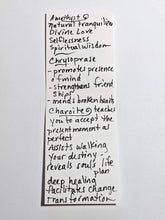 Amethyst
Natural tranquilizer
Divine Love
Selflessness
Spiritual wisdom
Chrysoprase
- promotes presence
of mind
- strengthens friend
ships
- mends broken hearts
Charoite teaches
you to accept the
present moment as
perfect
Assists walking
your destiny -
reveals souls life
plan
deep healing
facilitates change
Transformation